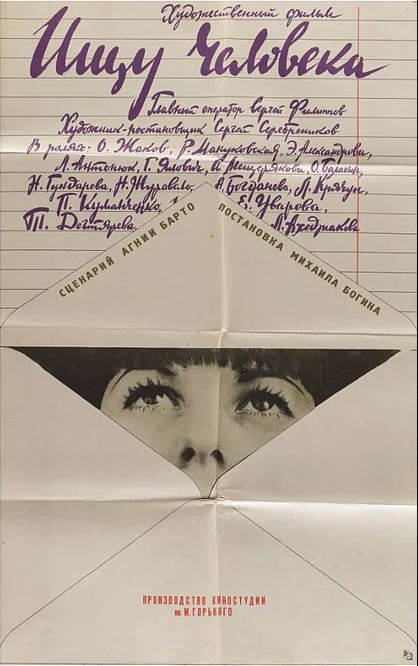 Художественный фильм
Ищу человека
Главный оператор Сергей Филиппов
Художник-постановщик Сергей Серебреников
В ролях: О. Жаков, Р. Мануковская, Э. Александрова,
Л. Антонюк, Г. Ялович, А. Мещерякова, О. Балакин,
Н. Гундарева, Н. Журавель, А. Богданова, Л. Крячун,
П. Кирманченко, Е. Уварова,
Т. Дегтярева Л. Ахеджакова
СЦЕНАРИЙ АГНИИ БАРТО
ПОСТАНОВКА МИХАИЛА БОГИНА
ПРОИЗВОДСТВО КИНОСТУДИИ
им. М. ГОРЬКОГО